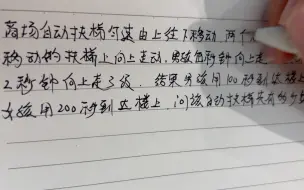 商场自动扶梯匀速由上往下移动,两个
移动的扶梯上向上走动,男孩每秒钟向上走
2秒钟向上走3级,结果男孩用100秒到达楼
女孩用200秒到达楼上,问该自动扶梯共有